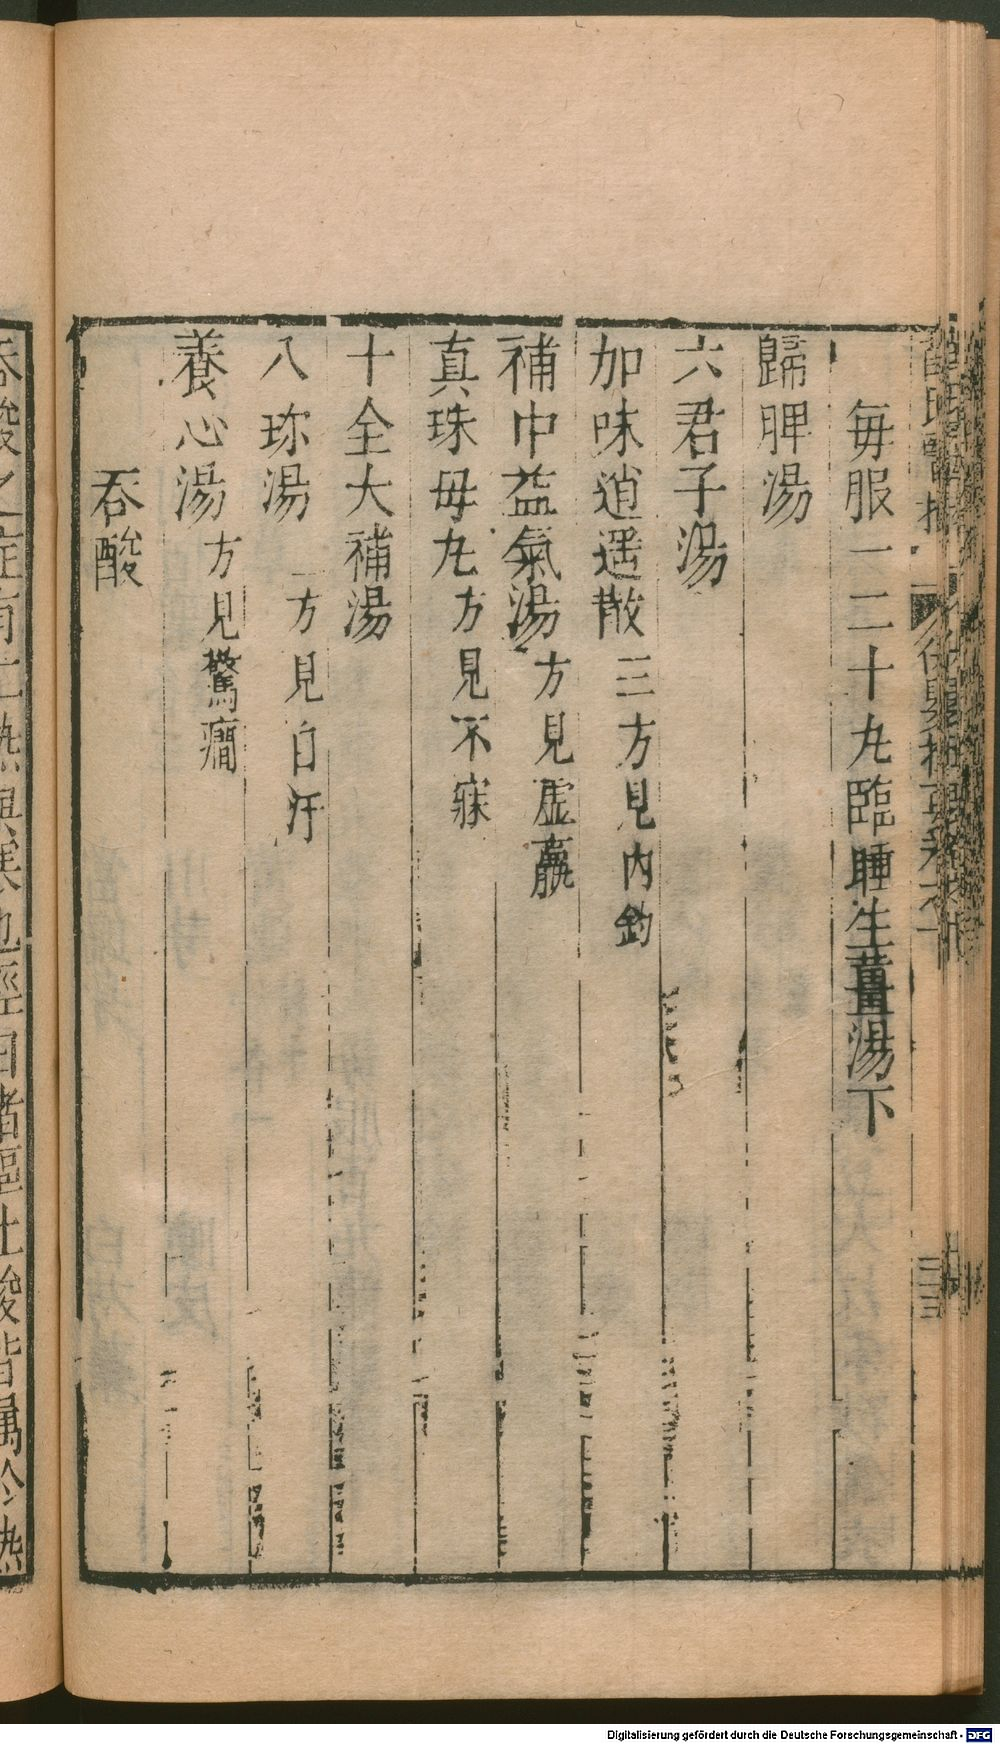 每服一二十丸臨睡生薑湯下
歸脾湯
六君子湯
加味逍遥散三方見內釣
補中益氣湯方見虛羸
真珠母丸方見不寐
十全大補湯
八珍湯二方見自汗
養心湯方見驚癎
吞酸
吞酸之症有二熱與寒也經曰諸嘔吐酸皆属於熱
Digitalisierung gefördert durch die Deutsche Forschungsgemeinschaft - DFG